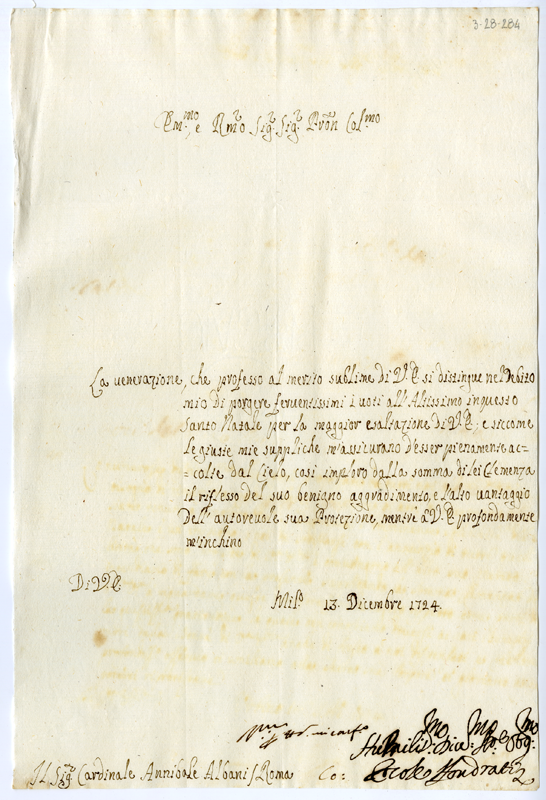 3-28-284
Em.mo, e R.mo Sig.r Sig.r P.ron Col.mo
La venerazione, che professo al merito sublime di V.E. si distingue nel debito
mio di porgere ferventissimi i voti all'Altissimo in questo
Santo Natale per la maggior esaltazione di V.E.; e siccome
le giuste mie suppliche m'assicurano d'esser pienamente ac=
=colte dal Cielo, così imploro dalla somma di lei Clemenza
il riflesso del suo benigno aggradimento, e l'alto vantaggio
dell'autorevole sua Protezione, mentre a V.E. profondamente
m'inchino
Di V.E.
Mil.o 13. Dicembre 1724.
Humiliss.mo Div.mo Ser. Obbg.mo
Il Sig.r Cardinale Annibale Albani / Roma Co: Ercole Sondrati